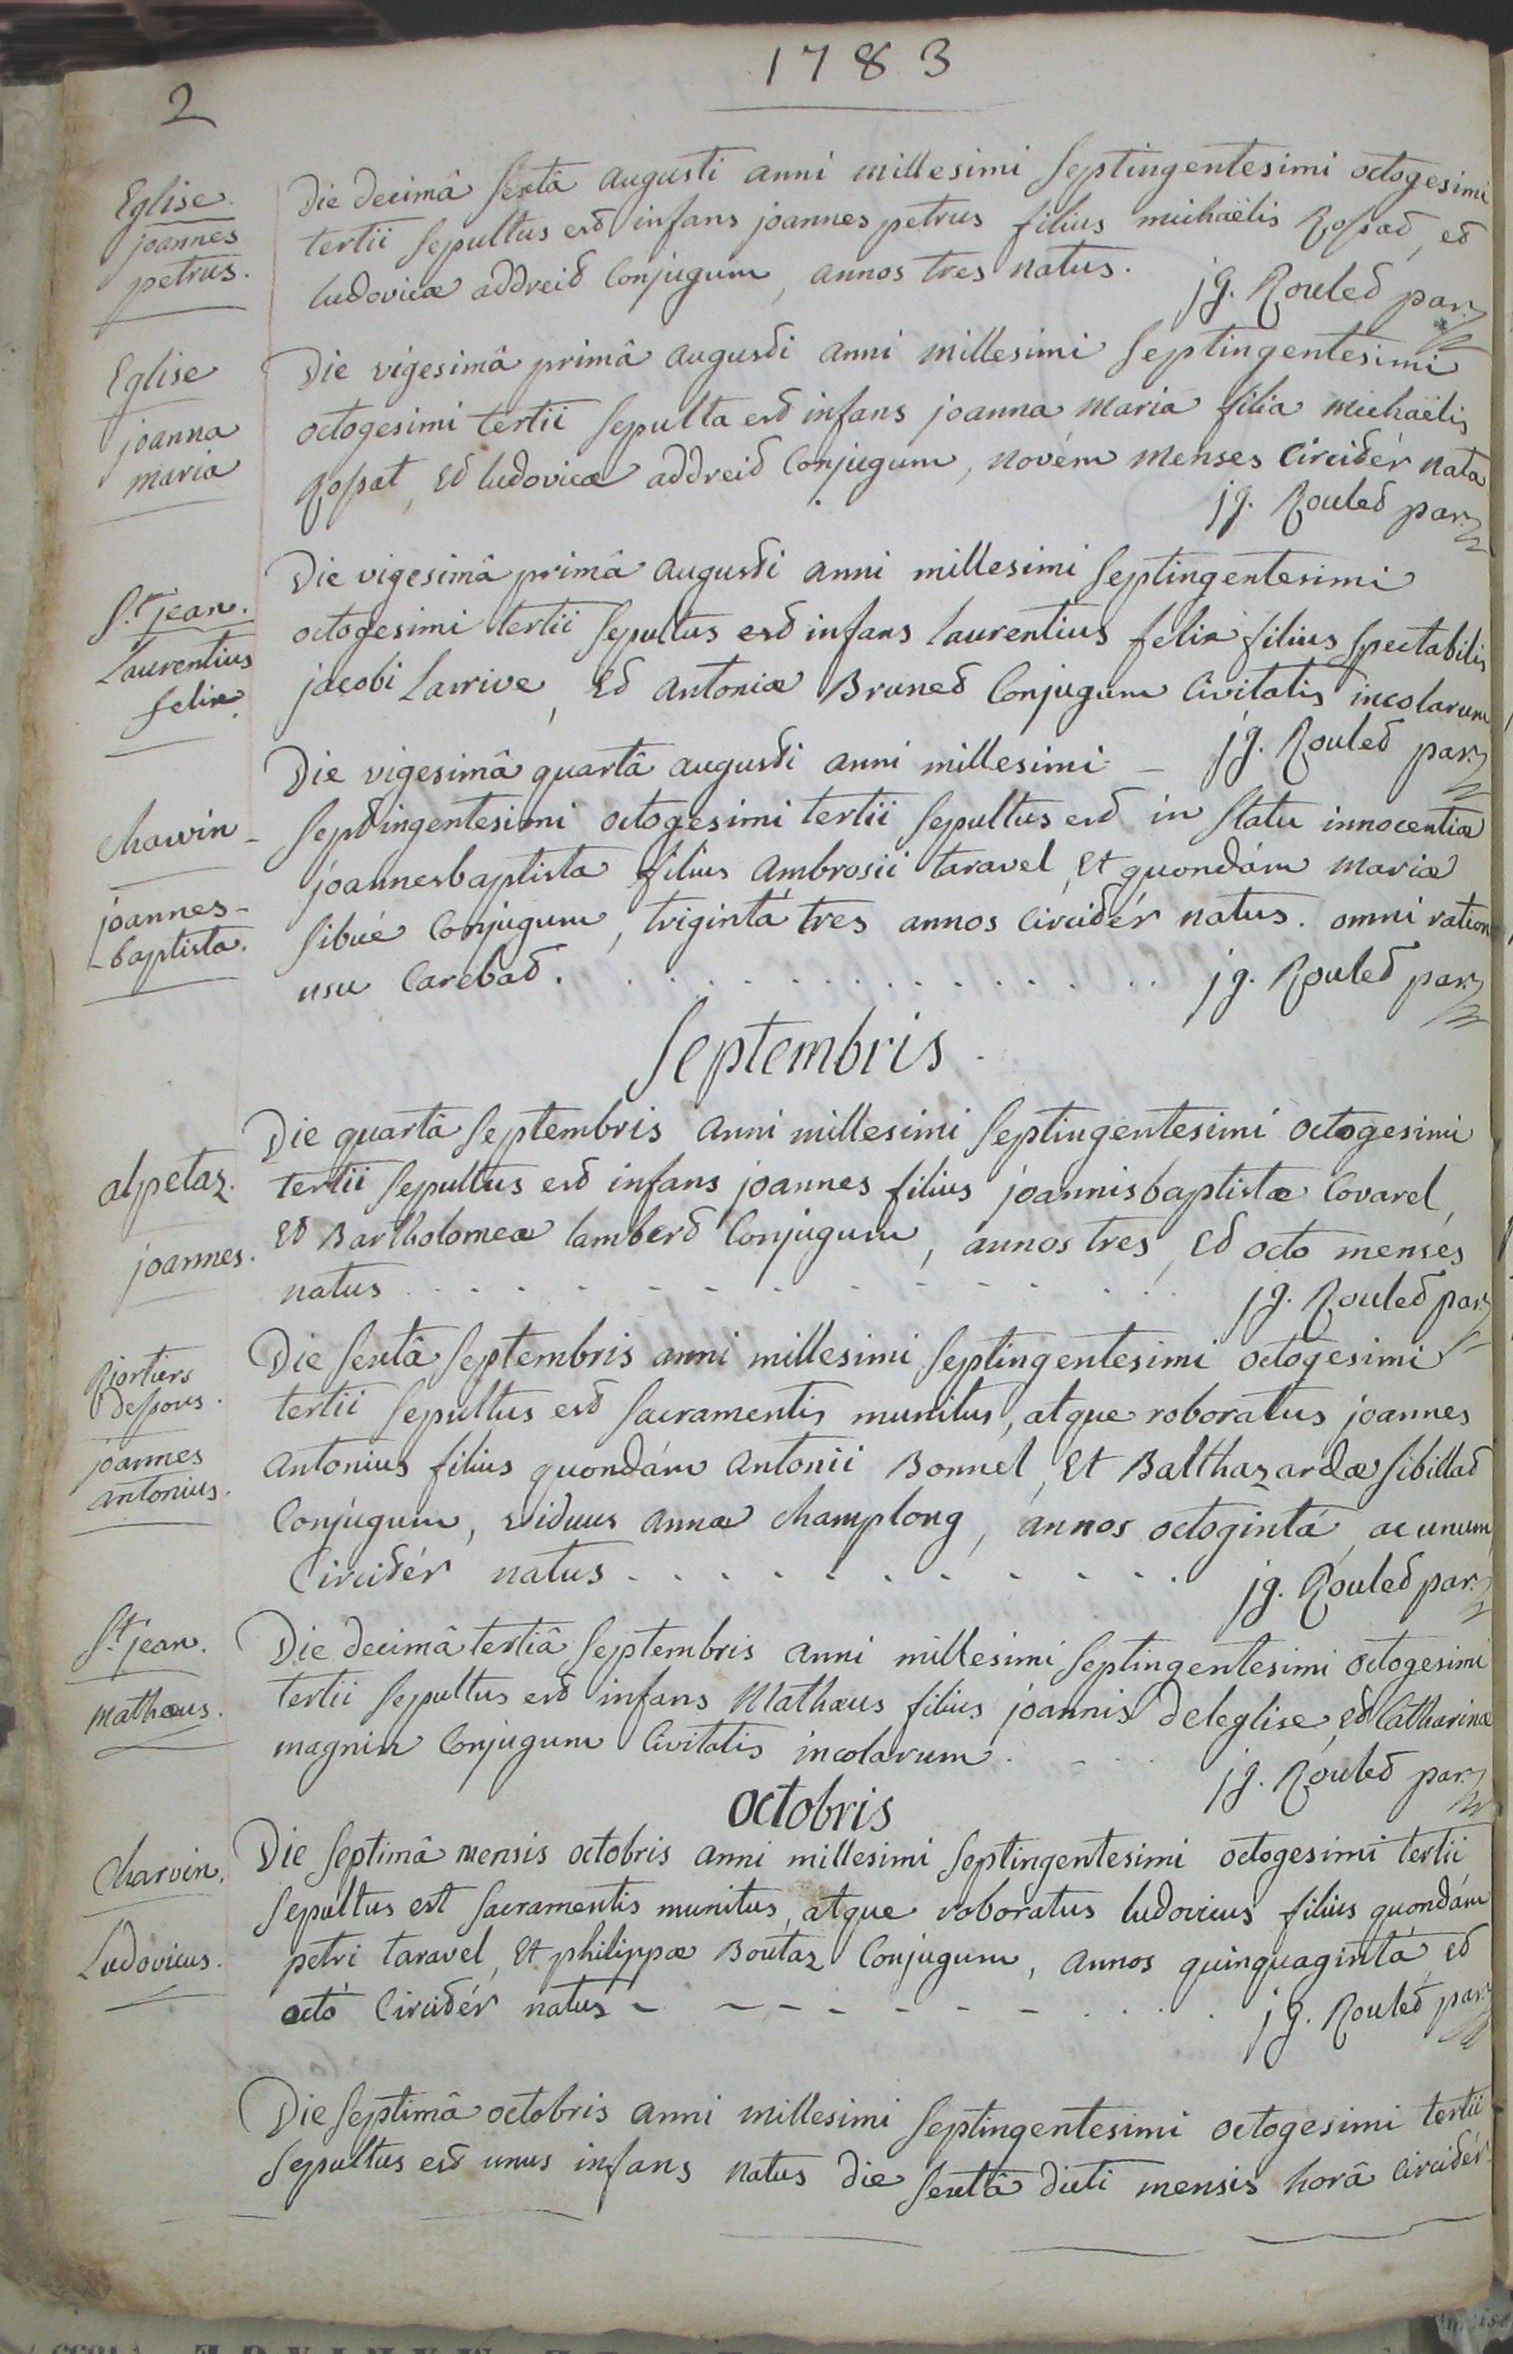 1783
2
Eglise.
joannes
petrus.
Die decimâ sextâ augusti anni millesimi septingentesimi octogesimi
tertii sepultus est infans joannes petrus filius michaëlis Rossat, et
ludovicæ addreit Conjugum, annos tres natus.
jg. Roulet par.
Eglise
joanna
maria
Die vigesimâ primâ augusti anni millesimi septingentesimi
octogesimi tertii sepulta est infans joanna maria filia michaëlis
Rossat, Et ludovicæ addreit Conjugum, novém menses circitér nata
jg. Roulet par.
St. jean.
Laurentius
felix
Die vigesimâ primâ augusti anni millesimi septingentesimi
octogesimi tertii sepultus est infans laurentius felix filius spectabilis
jacobi Larrive, Et antoniæ Brunet Conjugum Civitatis incolarum
jg. Roulet par.
charvin
joannes-
-baptista.
Die vigesimâ quartâ augusti anni millesimi -
septingentesimi octogesimi tertii sepultus est in statu innocentiæ
joannesbaptista filius ambrosii taravel, Et quondám mariæ
sibué Conjugum, trigintá tres annos circitér natus. omni ration
usu Carebat. . . . . . . . . . . . . . . jg. Roulet par.
Septembris.
alpetaz.
joannes.
Die quartâ septembris anni millesimi septingentesimi octogesimi
tertii sepultus est infans joannes filius joannisbaptistæ Covarel,
Et Bartholomeæ lambert Conjugum, annos tres, Et octo menses
natus . . . . . . . . . . . . jg. Roulet par.
Rjortiers
Dessous.
joannes
antonius.
Die sextâ septembris anni millesimi septingentesimi octogesimi
tertii sepultus est sacramentis munitus, atque roboratus joannes
antonius filius quondám antonii Bonnel, Et Balthazardæ sibillat
Conjugum, viduus annæ champlong, annos octogintá, ac unum
Circitér natus . . . . . . . . . . . jg. Roulet par.
St. jean.
mathæus.
Die decimâ tertiâ septembris anni millesimi septingentesimi octogesimi
tertii sepultus est infans Mathæus filius joannis deleglise, Et Catharinæ
magnin Conjugum Civitatis incolarum . . . .
jg. Roulet par.
octobris
Charvin.
Ludovicus.
Die septimâ mensis octobris anni millesimi septingentesimi octogesimi tertii
sepultus est sacramentis munitus, atque roboratus ludovicus filius quondám
petri taravel, Et philippæ Boutaz Conjugum, annos quinquagintá, et
octo Circitér natus - - - - - - - . . . . jg. Roulet par.
Die septimâ octobris anni millesimi septingentesimi octogesimi tertii
sepultus est unus infans natus die sextâ dicti mensis horâ circitér